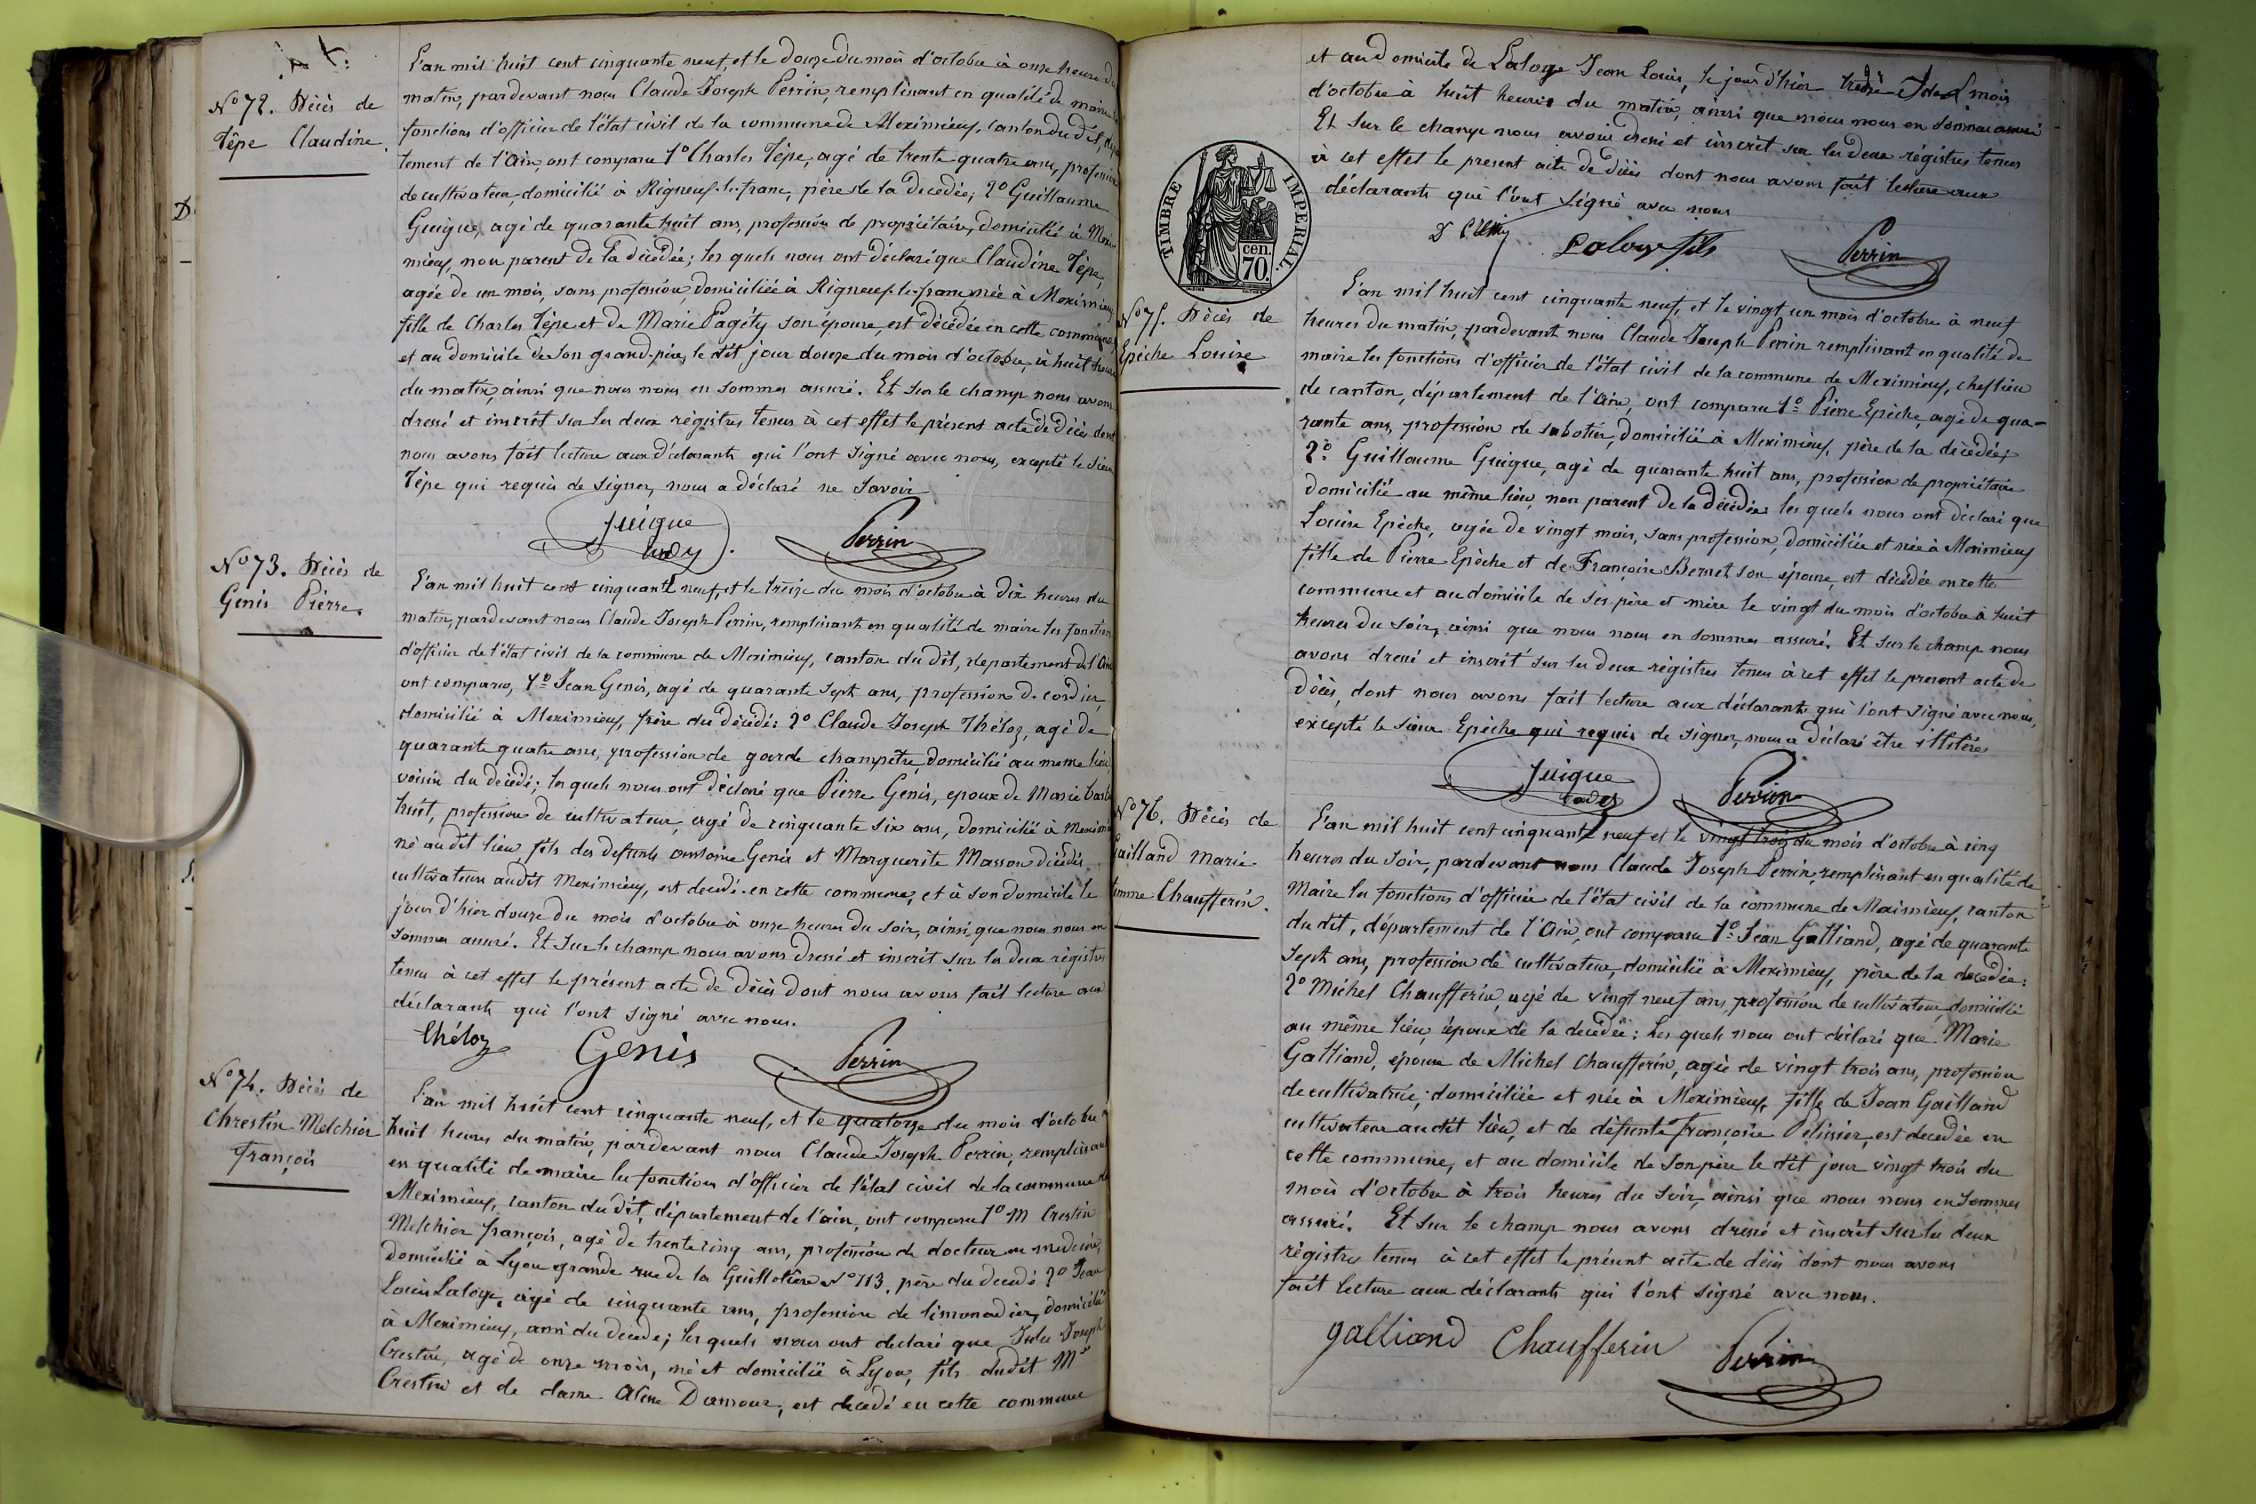 N° 72. Décès de
Têpe Claudine.
L'an mil huit cent cinquante neuf, et le douze du mois d'octobre à onze heures du
matin, pardevant nous Claude Joseph Perrin, remplissant en qualité de maire les
fonctions d'officier de l'état civil de la commune de Meximieux, canton du dit, dépar
tement de l'Ain, ont comparu 1° Charles Têpe, agé de trente quatre ans, profession
de cultivateur, domicilié à Rigneux-le-franc, père de la decedée; 2° Guillaume
Guigue, agé de quarante huit ans, profession de propriétaire, domicilié à Mexi
mieux, non parent de la décédée; les quels nous ont déclaré que Claudine Têpe,
agée de un mois, sans profession, domiciliée à Rigneux-le-franc, née à Meximieux
fille de Charles Têpe et de Marie Pagéty son épouse, est décédée en cette commune,
et au domicile de son grand-père, le dit jour douze du mois d'octobre, à huit heures
du matin, ainsi que nous nous en sommes assuré. Et sur le champ nous avons
dressé et inscrit sur les deux régistres tenus à cet effet le présent acte de décès dont
nous avons fait lecture aux déclarants qui l'ont signé avec nous, excepté le sieur
Têpe qui requis de signer, nous a déclaré ne savoir
Guigue
Perrin
N° 73. Décès de
Genis Pierre.
L'an mil huit cent cinquante neuf, et le treize du mois d'octobre à dix heures du
matin, pardevant nous Claude Joseph Perrin, remplissant en qualité de maire les fonctions
d'officier de l'état civil de la commune de Meximieux, canton du dit, département de l'Ain
ont comparu, 1° Jean Genis, agé de quarante sept ans, profession de cordier
domicilié à Meximieux, frère du décédé; 2° Claude Joseph Théloz, agé de
quarante quatre ans, profession de garde champêtre, domicilié au meme lieu,
voisin du décédé; les quels nous ont déclaré que Pierre Genis, epoux de Marie
huit, profession de cultivateur, agé de cinquante six ans, domicilié à Meximi
né audit lieu fils des defunts antoine Genis et Marguerite Masson décédés
cultivateurs audit Meximieux, est decedé en cette commune, et à son domicile le
jour d'hier douze du mois d'octobre à onze heures du soir, ainsi que nous nous en
sommes assuré. Et sur le champ nous avons dressé et inscrit sur les deux régistres
tenus à cet effet le présent acte de décès dont nous avons fait lecture aux
déclarants qui l'ont signé avec nous.
théloz Genis Perrin
N° 74. Décès de
Chrestin Melchior
françois
L'an mil huit cent cinquante neuf, et le quatorze du mois d'octobre
huit heures du matin, pardevant nous Claude Joseph Perrin, remplissant
en qualité de maire les fonctions d'officier de l'état civil de la commune de
Meximieux, canton du dit, département de l'ain, ont comparu 1° M Crestin
Melchior françois, agé de trente cinq ans, profession de docteur en medecine,
domicilié à Lyon grande rue de la Guillotière N° 113, père du decedé 2° Jean
Louis Laloge, agé de cinquante ans, profession de limonadier, domicilié
à Meximieux, ami du decede; les quels nous ont declaré que Jules Joseph
Crestin, agé de onze mois, né et domicilié à Lyon, fils dudit Mr
Crestin et de dame Aline Damour, est decedé en cette commune
et au domicile de Laloge Jean Louis, le jour d'hier treize du mois
d'octobre à huit heures du matin, ainsi que nous nous en sommes assuré
Et sur le champ nous avons dressé et inscrit sur les deux régistres tenus
à cet effet le present acte de décès dont nous avons fait lecture aux
déclarants qui l'ont signé avec nous
Laloge fils Perrin
TIMBRE IMPERIAL.
cen.
70.
N° 75. Décès de
Epêche Louise
L'an mil huit cent cinquante neuf, et le vingt un mois d'octobre à neuf
heures du matin, pardevant nous Claude Joseph Perrin remplissant en qualité de
maire les fonctions d'officier de l'état civil de la commune de Meximieux, cheflieu
de canton, département de l'Ain, ont comparu 1° Pierre Epêche, agé de qua-
rante ans, profession de sabotier, domicilié à Meximieux, père de la décédée;
2° Guillaume Guigue, agé de quarante huit ans, profession de propriétaire
domicilié au même lieu, non parent de la décédée; les quels nous ont déclaré que
Louise Epêche, agée de vingt mois, sans profession, domiciliée et née à Meximieux
fille de Pierre Epêche et de Françoise Bernet son épouse, est décédée en cette
commune et au domicile de ses père et mère le vingt du mois d'octobre à huit
heures du soir, ainsi que nous nous en sommes assuré. Et sur le champ nous
avons dressé et inscrit sur les deux régistres tenus à cet effet le present acte de
décès, dont nous avons fait lecture aux déclarants qui l'ont signé avec nous,
excepté le sieur Epêche qui requis de signer, nous a déclaré être illitéré
Guigue
Perrin
N° 76. Décès de
Gailland Marie
femme Chaufferin.
L'an mil huit cent cinquante neuf et le vingt trois du mois d'octobre à cinq
heures du soir, pardevant nous Claude Joseph Perrin, remplissant en qualité de
Maire les fonctions d'officier de l'état civil de la commune de Meximieux, canton
du dit, département de l'Ain, ont comparu 1° Jean Galliand, agé de quarante
sept ans, profession de cultivateur, domicilié à Meximieux, père de la decedée;
2° Michel Chaufferin, agé de vingt neuf ans, profession de cultivateur, domicilié
au même lieu, époux de la decédée; Les quels nous ont déclaré que Marie
Galliand, épouse de Michel Chaufferin, agée de vingt trois ans, profession
de cultivatrice, domiciliée et née à Meximieux, fille de Jean Gailland
cultivateur audit lieu, et de défunte françoise Pélissier, est decedée en
cette commune, et au domicile de son père le dit jour vingt trois du
mois d'octobre à trois heures du soir, ainsi que nous nous en sommes
assuré. Et sur le champ nous avons dressé et inscrit sur les deux
régistres tenus à cet effet le présent acte de décès dont nous avons
fait lecture aux déclarants qui l'ont signé avec nous.
galliand Chaufferin Perrin